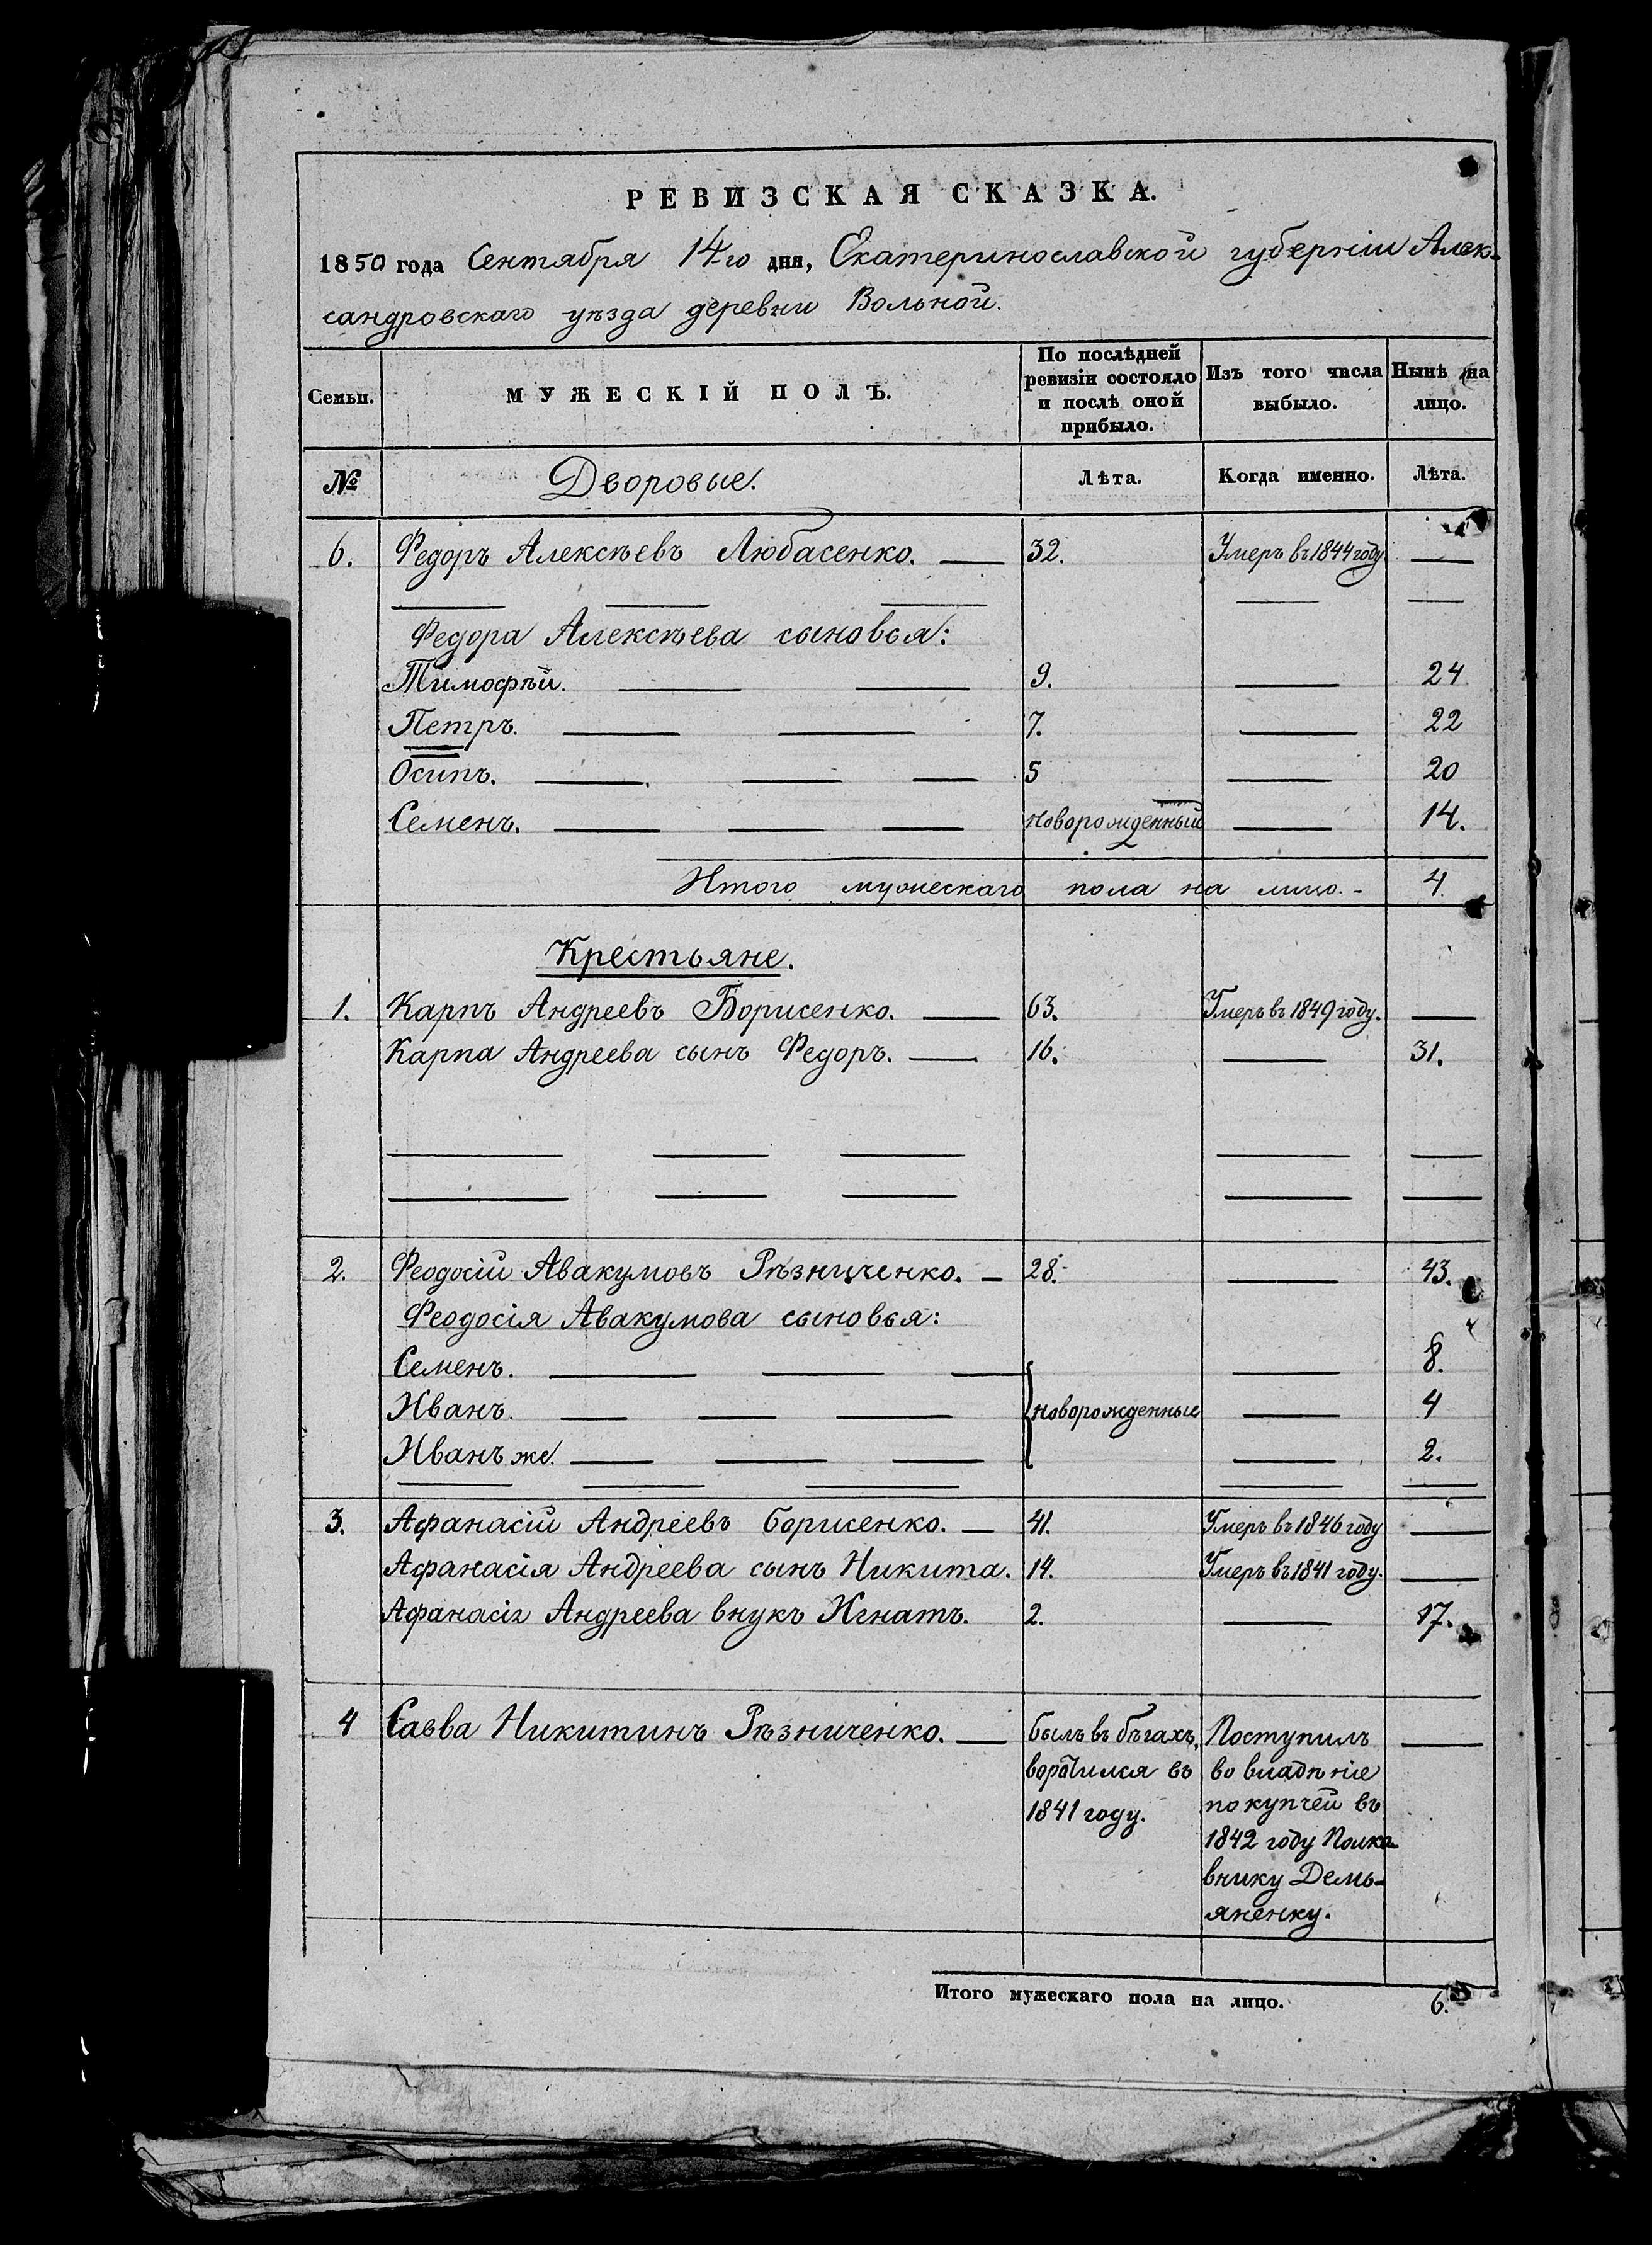 РЕВИЗСКАЯ СКАЗКА.
1850 года Сентября 14-го дня, Екатеринославской губерніи Алек-
сандровскаго уѣзда деревни Вольной.
Семьи. МУЖЕСКІЙ ПОЛЪ. По послѣдней ревизіи состояло и послѣ оной прибыло. Изъ того числа выбыло. Нынѣ на лицо.
№ Дворовые. Лѣта. Когда именно. Лѣта.
6. Федоръ Алексѣевъ Любасенко. — 32. Умеръ въ 1844 году —
Федора Алексѣева сыновья:
Тимофѣй. — 9. — 24
Петръ. — 7. — 22
Осипъ. — 5 — 20
Семенъ. — новорожденный — 14.
Итого мужескаго пола на лицо. - 4.
Крестьяне.
1. Карпъ Андреевъ Борисенко. — 63. Умеръ въ 1849 году. —
Карпа Андреева сынъ Федоръ. — 16. — 31.
2. Феодосій Авакумовъ Рѣзниченко. — 28. — 43.
Феодосія Авакумова сыновья:
Семенъ. — — 8.
Иванъ. — новорожденные — 4
Иванъ же. — — 2.
3. Афанасій Андреевъ Борисенко. — 41. Умеръ въ 1846 году —
Афанасія Андреева сынъ Никита. 14. Умеръ въ 1841 году. —
Афанасія Андреева внукъ Игнатъ. 2. — 17.
4 Савва Никитинъ Рѣзниченко. — былъ въ бѣгахъ, Поступилъ —
воротился въ во владѣніе
1841 году. покупчей въ
1842 году Полко-
внику Демь-
яненку.
Итого мужескаго пола на лицо. 6.